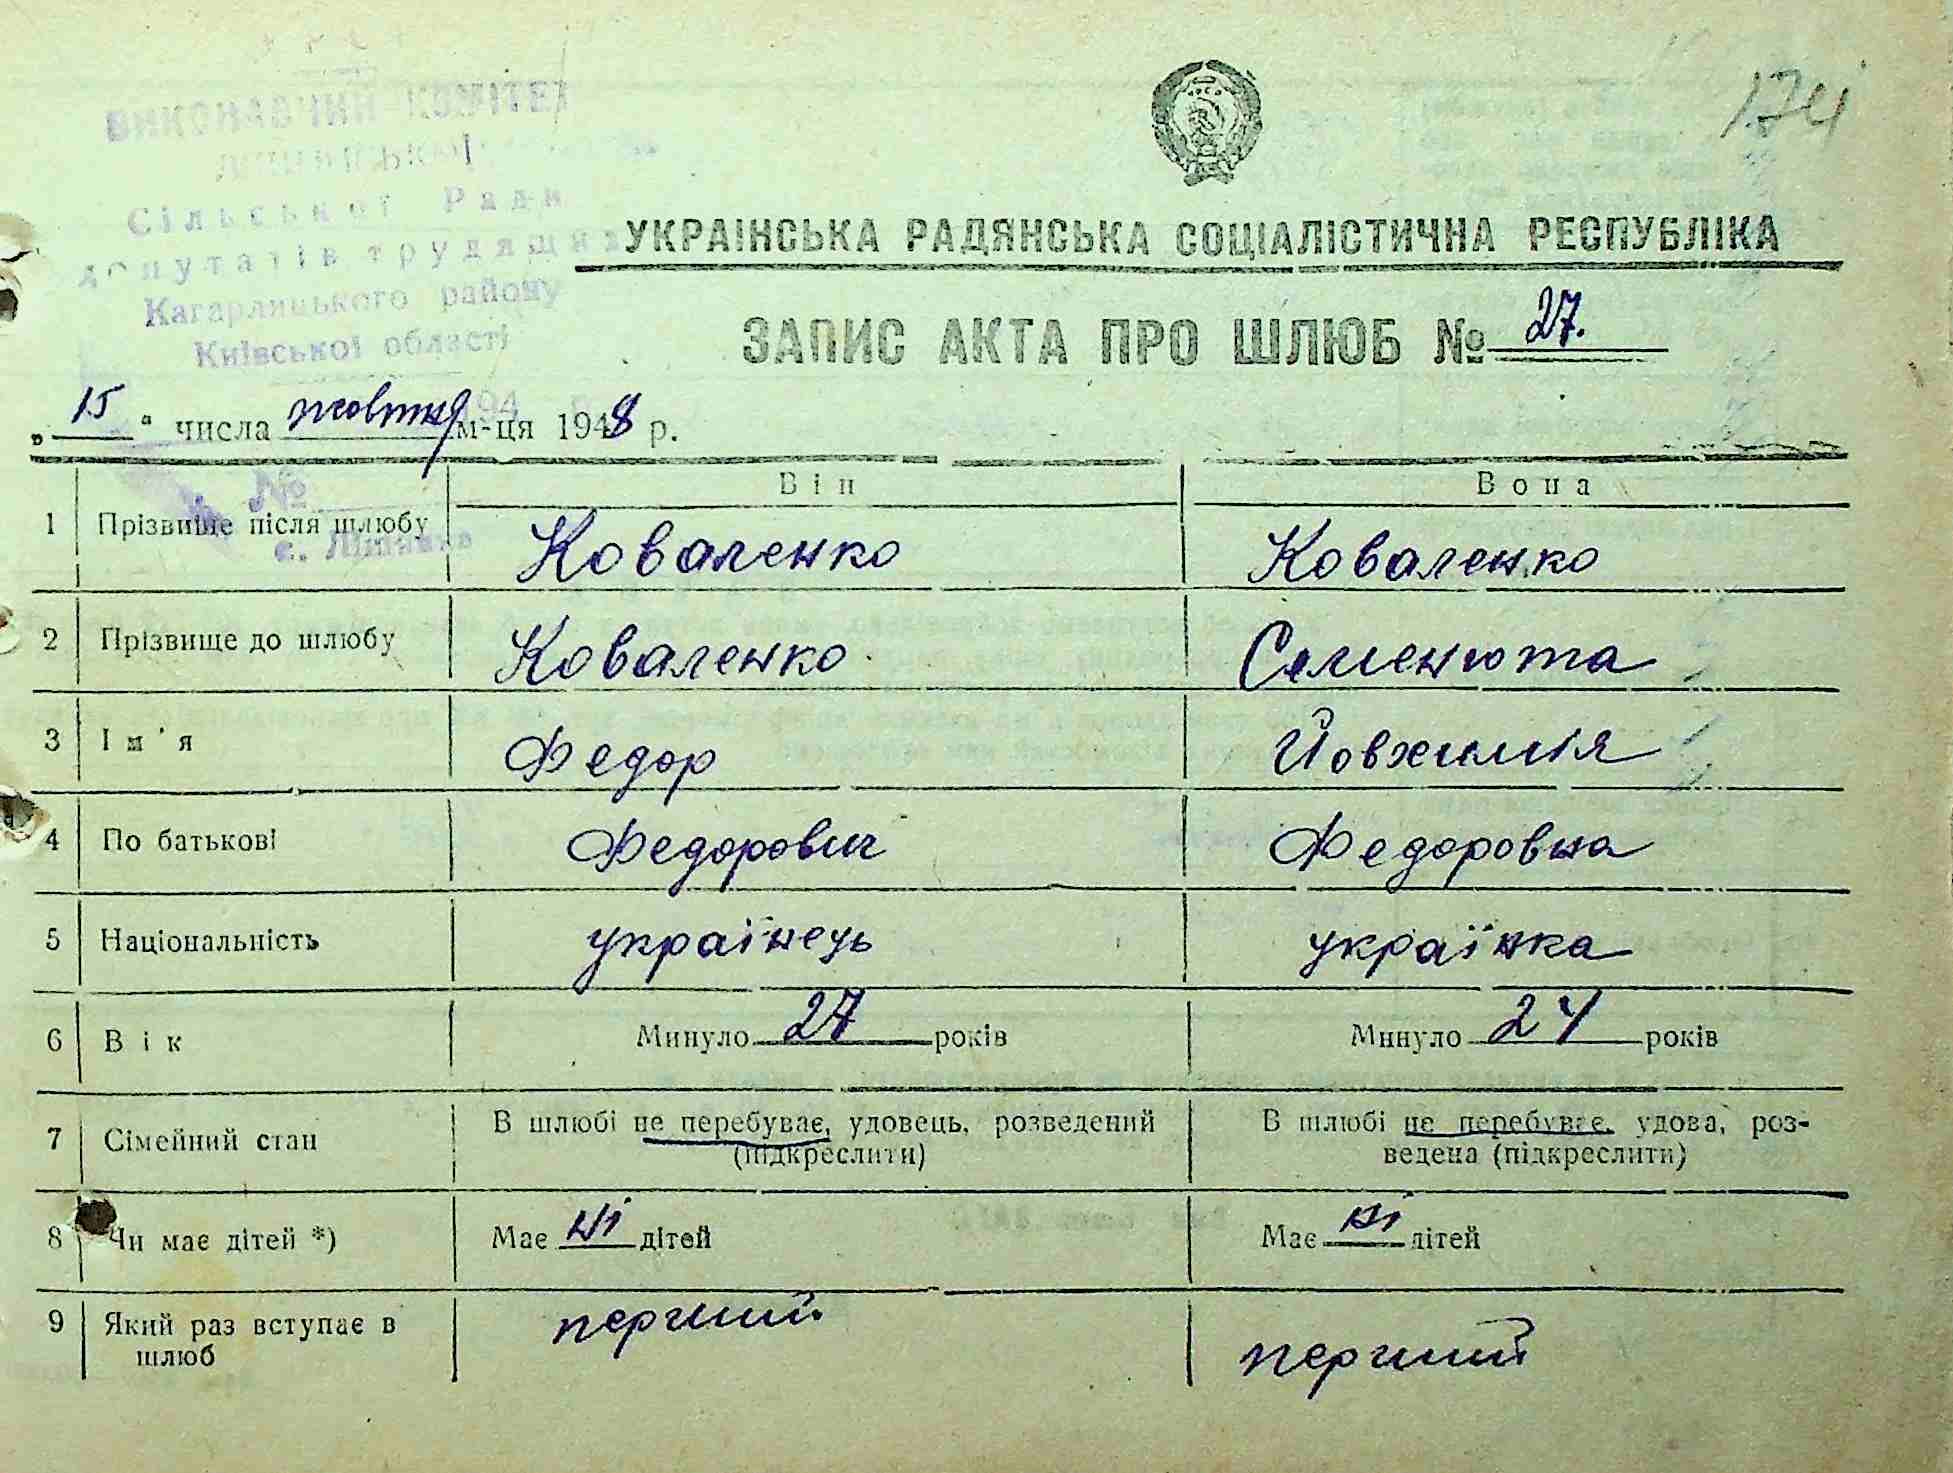 174
ВИКОНАВЧИЙ КОМІТЕТ
Сільської Ради
депутатів трудящих
Кагарлицького району
Київської області
194
№
с.
УКРАЇНСЬКА РАДЯНСЬКА СОЦІАЛІСТИЧНА РЕСПУБЛІКА
ЗАПИС АКТА ПРО ШЛЮБ № 27.
„15“ числа жовтня м-ця 1948 р.
Він Вона
1 Прізвище після шлюбу Коваленко Коваленко
2 Прізвище до шлюбу Коваленко Семенюта
3 Ім'я Федор Йовхимія
4 По батькові Федорович Федоровна
5 Національність украінець українка
6 Вік Минуло 27 років Минуло 24 років
7 Сімейний стан В шлюбі не перебуває, удовець, розведений (підкреслити) В шлюбі не перебуває, удова, роз-
ведена (підкреслити)
8 Чи має дітей *) Має ні дітей Має ні дітей
9 Який раз вступає в шлюб перший перший